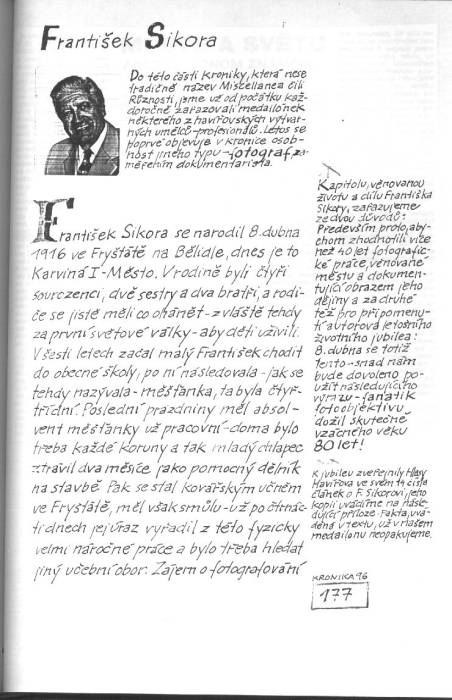 František Sikora
Do této části kroniky, která nese
tradičně název Miscellanea čili
Různosti, jsme už od počátku kaž-
doročně zařazovali medailónek
některého z havířovských výtvar-
ných umělců-profesionálů. Letos se
poprvé objevuje v kronice osob-
nost jiného typu - fotograf za-
měřením dokumentarista.
František Sikora se narodil 8. dubna
1916 ve Fryštátě na Bělidle, dnes je to
Karviná I-Město. V rodině byli čtyři
sourozenci, dvě sestry a dva bratři, a rodi-
če se jistě měli co ohánět - zvláště tehdy
za první světové války - aby děti uživili.
V šesti letech začal malý František chodit
do obecné školy, po ní následovala - jak se
tehdy nazývala - měšťanka, ta byla čtyř-
třídní. Poslední prázdniny měl absol-
vent měšťanky už pracovní - doma bylo
třeba každé koruny a tak mladý chlapec
ztrávil dva měsíce jako pomocný dělník
na stavbě. Pak se stal kovářským učněm
ve Fryštátě, měl však smůlu - už po čtrnác-
ti dnech jej úraz vyřadil z této fyzicky
velmi náročné práce a bylo třeba hledat
jiný učební obor. Zájem o fotografování
Kapitolu, věnovanou
životu a dílu Františka
Sikory, zařazujeme
ze dvou důvodů:
Především proto, aby-
chom zhodnotili více
než 40 let fotografic-
ké práce, věnované
městu a dokumen-
tující obrazem jeho
dějiny a za druhé
též pro připomenu-
tí autorova letošního
životního jubilea:
8. dubna se totiž
tento - snad nám
bude dovoleno po-
užít následujícího
výrazu - fanatik
fotoobjektivu
dožil skutečně
vzácného věku
80 let!
K jubileu zveřejnily Hlasy
Havířova ve svém 14. čísle
článek o F. Sikorovi, jeho
kopii uvádíme na násle-
dující příloze. Fakta, uvá-
děná v textu, už v našem
medailonu neopakujeme.
KRONIKA 96
177